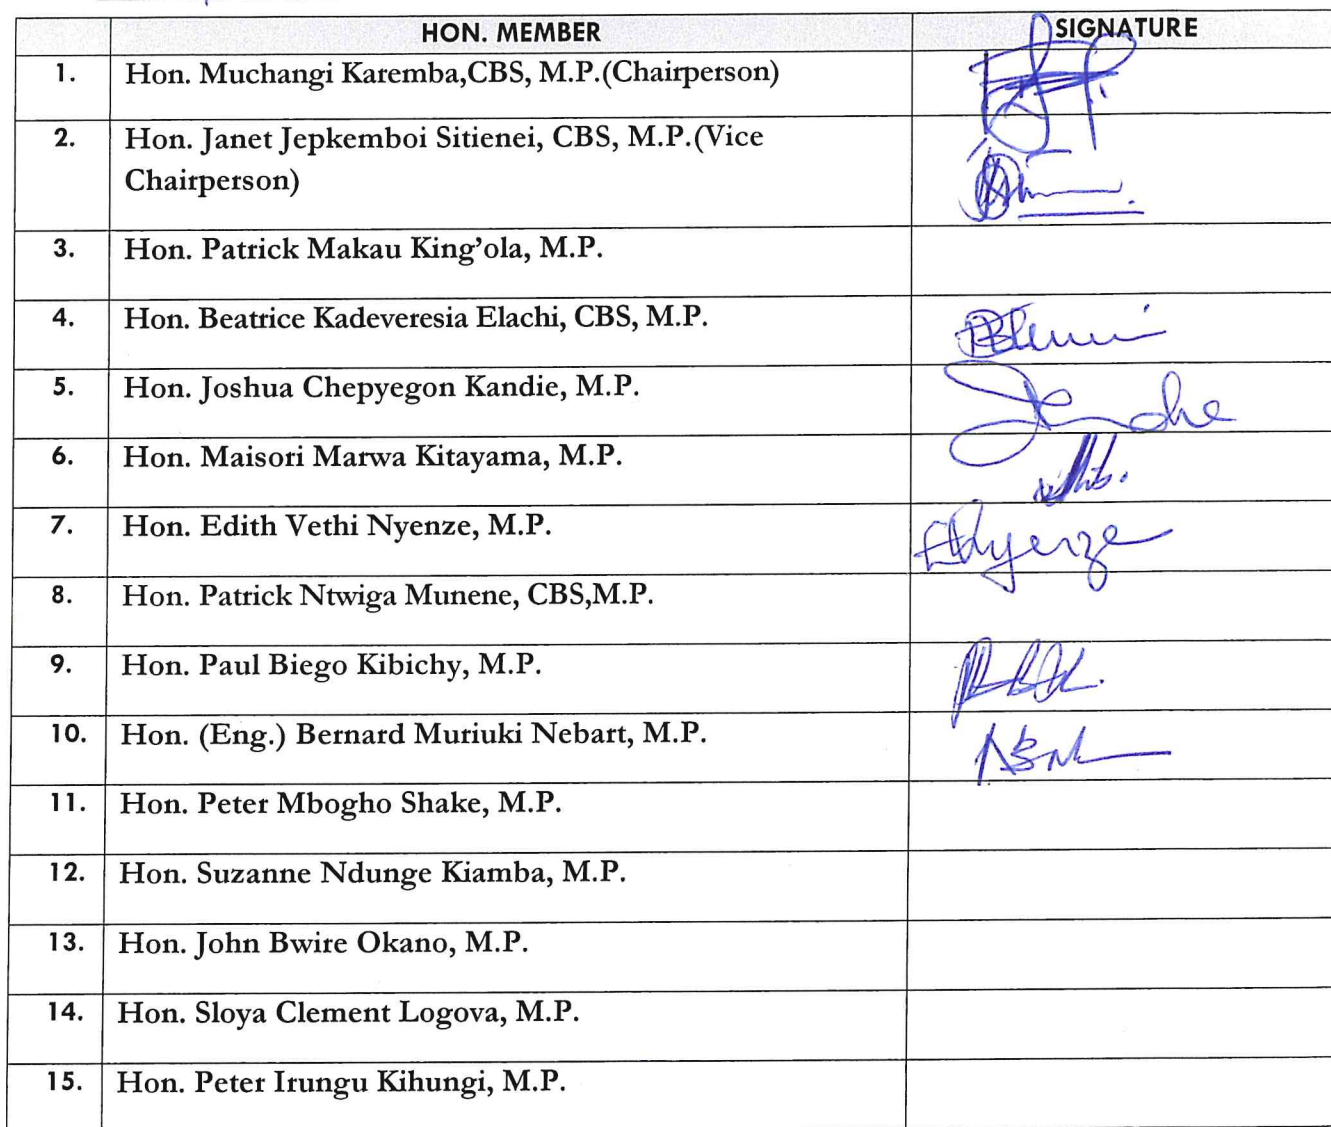 HON. MEMBER SIGNATURE
1. Hon. Muchangi Karemba,CBS, M.P.(Chairperson)
2. Hon. Janet Jepkemboi Sitienei, CBS, M.P.(Vice
Chairperson)
3. Hon. Patrick Makau King’ola, M.P.
4. Hon. Beatrice Kadeveresia Elachi, CBS, M.P.
5. Hon. Joshua Chepyegon Kandie, M.P.
6. Hon. Maisori Marwa Kitayama, M.P.
7. Hon. Edith Vethi Nyenze, M.P.
8. Hon. Patrick Ntwiga Munene, CBS,M.P.
9. Hon. Paul Biego Kibichy, M.P.
10. Hon. (Eng.) Bernard Muriuki Nebart, M.P.
11. Hon. Peter Mbogho Shake, M.P.
12. Hon. Suzanne Ndunge Kiamba, M.P.
13. Hon. John Bwire Okano, M.P.
14. Hon. Sloya Clement Logova, M.P.
15. Hon. Peter Irungu Kihungi, M.P.